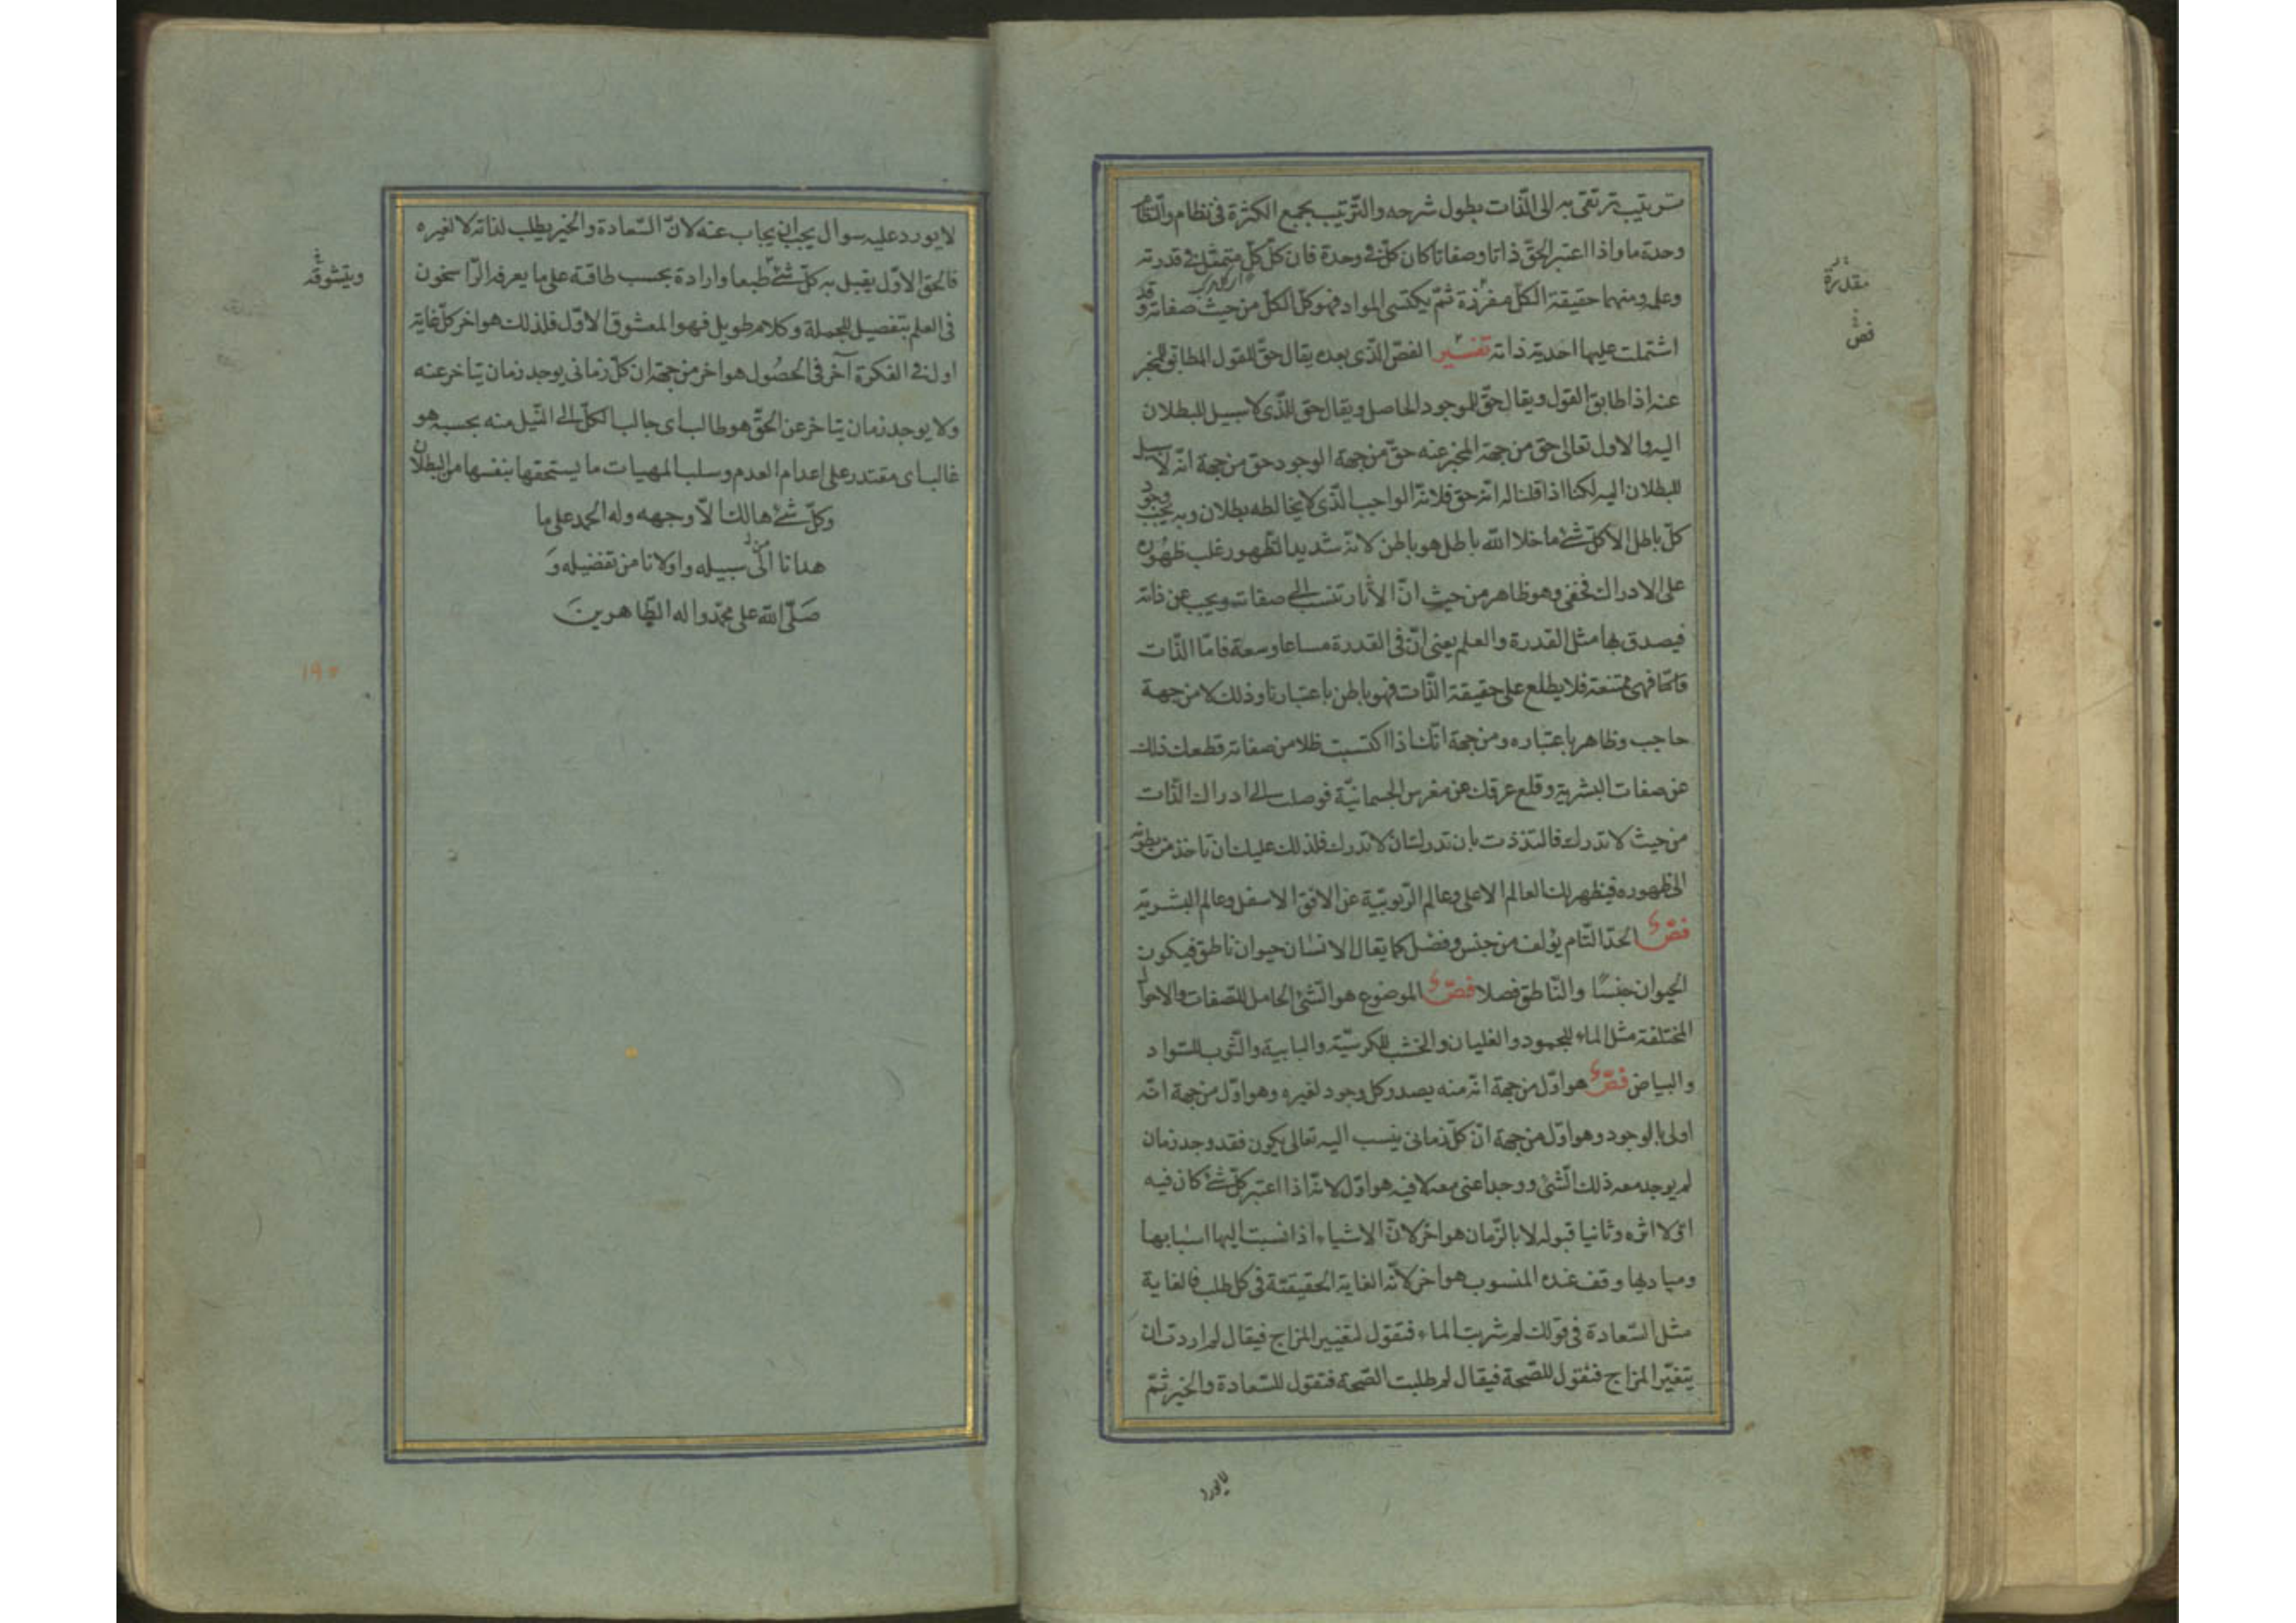 بترتيب ترتقى به الى الذّات بطول شرحه والتّرتيب يجمع الكثرة فى نظام والنّظام
وحدة ما واذا اعتبر الحقّ ذاتا وصفاتا كان كلّ فى وحدة فان كلّ كلّ متمثّل فى قدرته
وعلمه ومنهما حقيقة الكلّ مفرزة ثمّ يكتسى المواد فهو كلّ الكلّ من حيث صفاته وقد
اشتملت عليها احدية ذاته تفسير الفصّ الّذى بعده يقال حقّ للقول المطابق للمخبر
عنه اذا طابق القول ويقال حقّ للموجود الحاصل ويقال حقّ للّذى لا سبيل للبطلان
اليه والاول تعالى حق من جهة المخبر عنه حقّ من جهة الوجود حق من جهة انّه لا سبيل
للبطلان اليه لكنا اذا قلنا له انّه حق فلانّه الواجب الّذى لا يخالطه بطلان وبه يجب وجود
كلّ باطل الا كلّ شئ ما خلا الله باطل هو باطن لانّه شديد الظّهور غلب ظهوره
على الادراك فخفى وهو ظاهر من حيث انّ الآثار تنسب الى صفاته ويجب عن ذاته
فيصدق بها مثل القدرة والعلم يعنى انّ فى القدرة مساعا وسعة فامّا الذّات
فانّها فهى ممتنعة فلا يطلع على حقيقة الذّات فهو باطن باعتبارنا وذلك لا من جهة
حاجب وظاهر باعتباره ومن جهة انّك اذا اكتسبت ظلا من صفاته قطعك ذلك
عن صفات البشرية وقلع عرقك عن مغرس الجسمانيّة فوصلت الى ادراك الذّات
من حيث لا تدرك فالتذذت بان تدرك ان لا تدرك فلذلك عليك ان تاخذ من بطونه
الى ظهوره فيظهر لك العالم الاعلى وعالم الرّبوبيّة عن الافق الاسفل وعالم البشريّة
فصّ الحدّ التّام يؤلف من جنس وفصل كما يقال الانسان حيوان ناطق فيكون
الحيوان جنسًا والنّاطق فصلا فصّ الموضوع هو الشّئ الحامل للصّفات والاحوال
المختلفة مثل الماء للجمود والغليان والخشب للكرسيّة والبابية والثّوب للسّواد
والبياض فصّ هو اوّل من جهة انّه منه يصدر كل وجود لغيره وهو اوّل من جهة انّه
اولى بالوجود وهو اوّل من جهة انّ كلّ زمانى ينسب اليه تعالى يكون فقد وجد زمان
لم يوجد معه ذلك الشّئ ووجد اعنى معه لا فيه هو اوّل لانّه اذا اعتبر كلّ شئ كان فيه
اوّلا اثره وثانيا قبوله لا بالزّمان هو اخر لانّ الاشياء اذا نسبت اليها اسبابها
ومباديها وقف عنده المنسوب هو اخر لانّه الغاية الحقيقيّة فى كل طلب فالغاية
مثل السّعادة فى قولك لم شربت الماء فتقول لتغيير المزاج فيقال لم اردت ان
يتغيّر المزاج فتقول للصّحة فيقال لم طلبت الصّحة فتقول للسّعادة والخير ثمّ
لا يورد
مقدرة
فصّ
لا يورد عليه سوال يجب ان يجاب عنه لانّ السّعادة والخير يطلب لذاته لا لغيره
فالحق الاوّل يقبل به كلّ شئ طبعا وارادة بحسب طاقته على ما يعرفه الرّاسخون
فى العلم بتفصيل الجملة وكلام طويل فهو المعشوق الاوّل فلذلك هو اخر كلّ غاية
اول فى الفكرة آخر فى الحصُول هو اخر من جهة ان كلّ زمانى يوجد زمان يتاخر عنه
ولا يوجد زمان يتاخر عن الحقّ هو طالب اى جالب الكلّ الى النّيل منه بحسبه هو
غالب اى مقتدر على اعدام العدم وسلب المهيات ما يستحقها بنفسها من البطلان
وكلّ شئ هالك الّا وجهه وله الحمد على ما
هدانا الى سبيله واولانا من تفضيله وَ
صَلّى الله على محمّد واله الطّاهرينَ
ويتشوقه